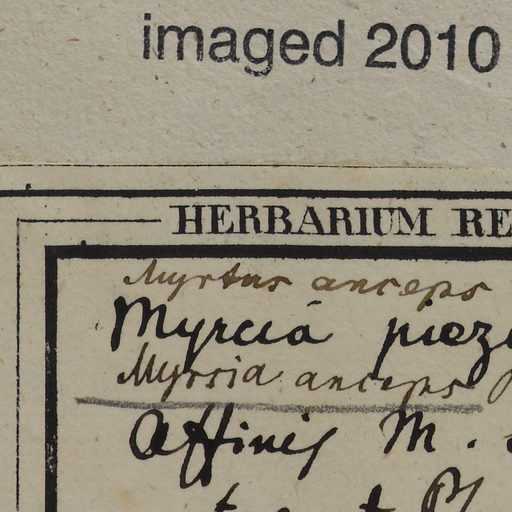 imaged 2010
HERBARIUM RE
Myrtus anceps
Myrcia piez
Myrcia anceps
Affinis M.